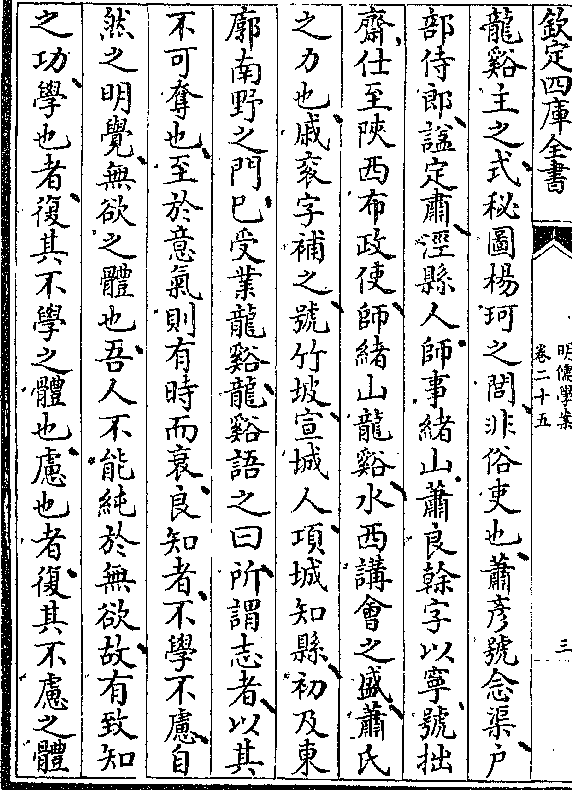 欽定四庫全書
明儒學案
卷二十五
三
龍谿主之式秘圖楊珂之閭非俗吏也蕭彥號念渠户
部侍郎諡定肅涇縣人師事緒山蕭良榦字以寧號拙
齋仕至陝西布政使師緒山龍谿水西講會之盛蕭氏
之力也戚衮字補之號竹坡宣城人項城知縣初及東
廓南野之門已受業龍谿龍谿語之曰所謂志者以其
不可奪也至於意氣則有時而衰良知者不學不慮自
然之明覺無欲之體也吾人不能純於無欲故有致知
之功學也者復其不學之體也慮也者復其不慮之體